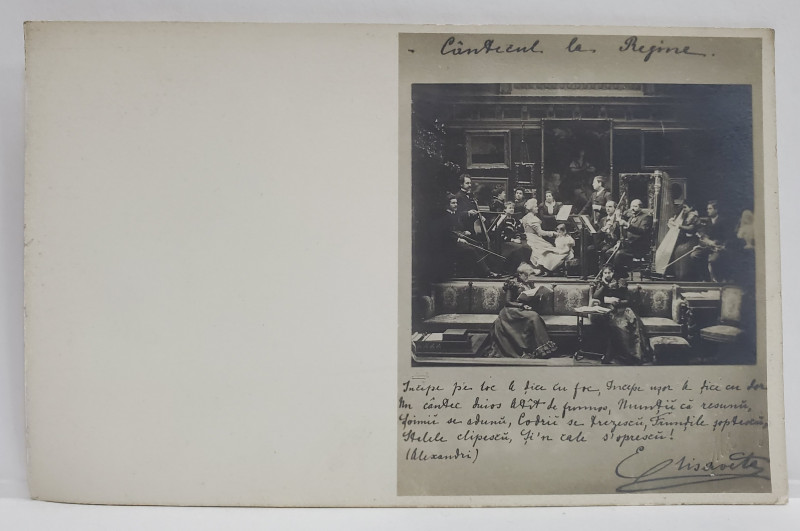 Cântecul la Regine.
Începe pe loc A dice cu foc, Începe uşor A dice cu dor
Un cântec duios Atît de frumos, Munţii că resunŭ,
Şoimii se adunŭ, Codrii se trezescŭ, Frunḑile şoptescŭ,
Stelele clipescŭ, Şi'n cale s'oprescŭ!
(Alexandri)
Elisaveta